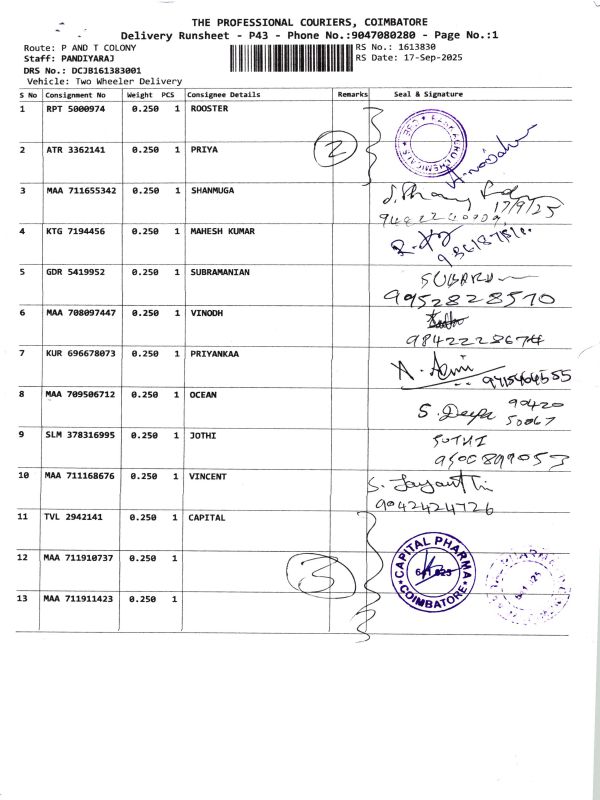 THE PROFESSIONAL COURIERS, COIMBATORE
Delivery Runsheet - P43 - Phone No.:9047080280 - Page No.:1
Route: P AND T COLONY
RS No.: 1613830
Staff: PANDIYARAJ
RS Date: 17-Sep-2025
DRS No.: DCJB161383001
Vehicle: Two Wheeler Delivery
S No Consignment No Weight PCS Consignee Details Remarks Seal & Signature
1 RPT 5000974 0.250 1 ROOSTER
2 ATR 3362141 0.250 1 PRIYA 2
3 MAA 711655342 0.250 1 SHANMUGA
17/9/25
4 KTG 7194456 0.250 1 MAHESH KUMAR
5 GDR 5419952 0.250 1 SUBRAMANIAN
9952828570
6 MAA 708097447 0.250 1 VINODH
9842228674
7 KUR 696678073 0.250 1 PRIYANKAA
8 MAA 709506712 0.250 1 OCEAN
S. Deepa 90420
50067
9 SLM 378316995 0.250 1 JOTHI
JOTHI
9500899053
10 MAA 711168676 0.250 1 VINCENT S. Jayanthi
9042424726
11 TVL 2942141 0.250 1 CAPITAL
12 MAA 711910737 0.250 1
3
CAPITAL PHARMA
COIMBATORE
13 MAA 711911423 0.250 1